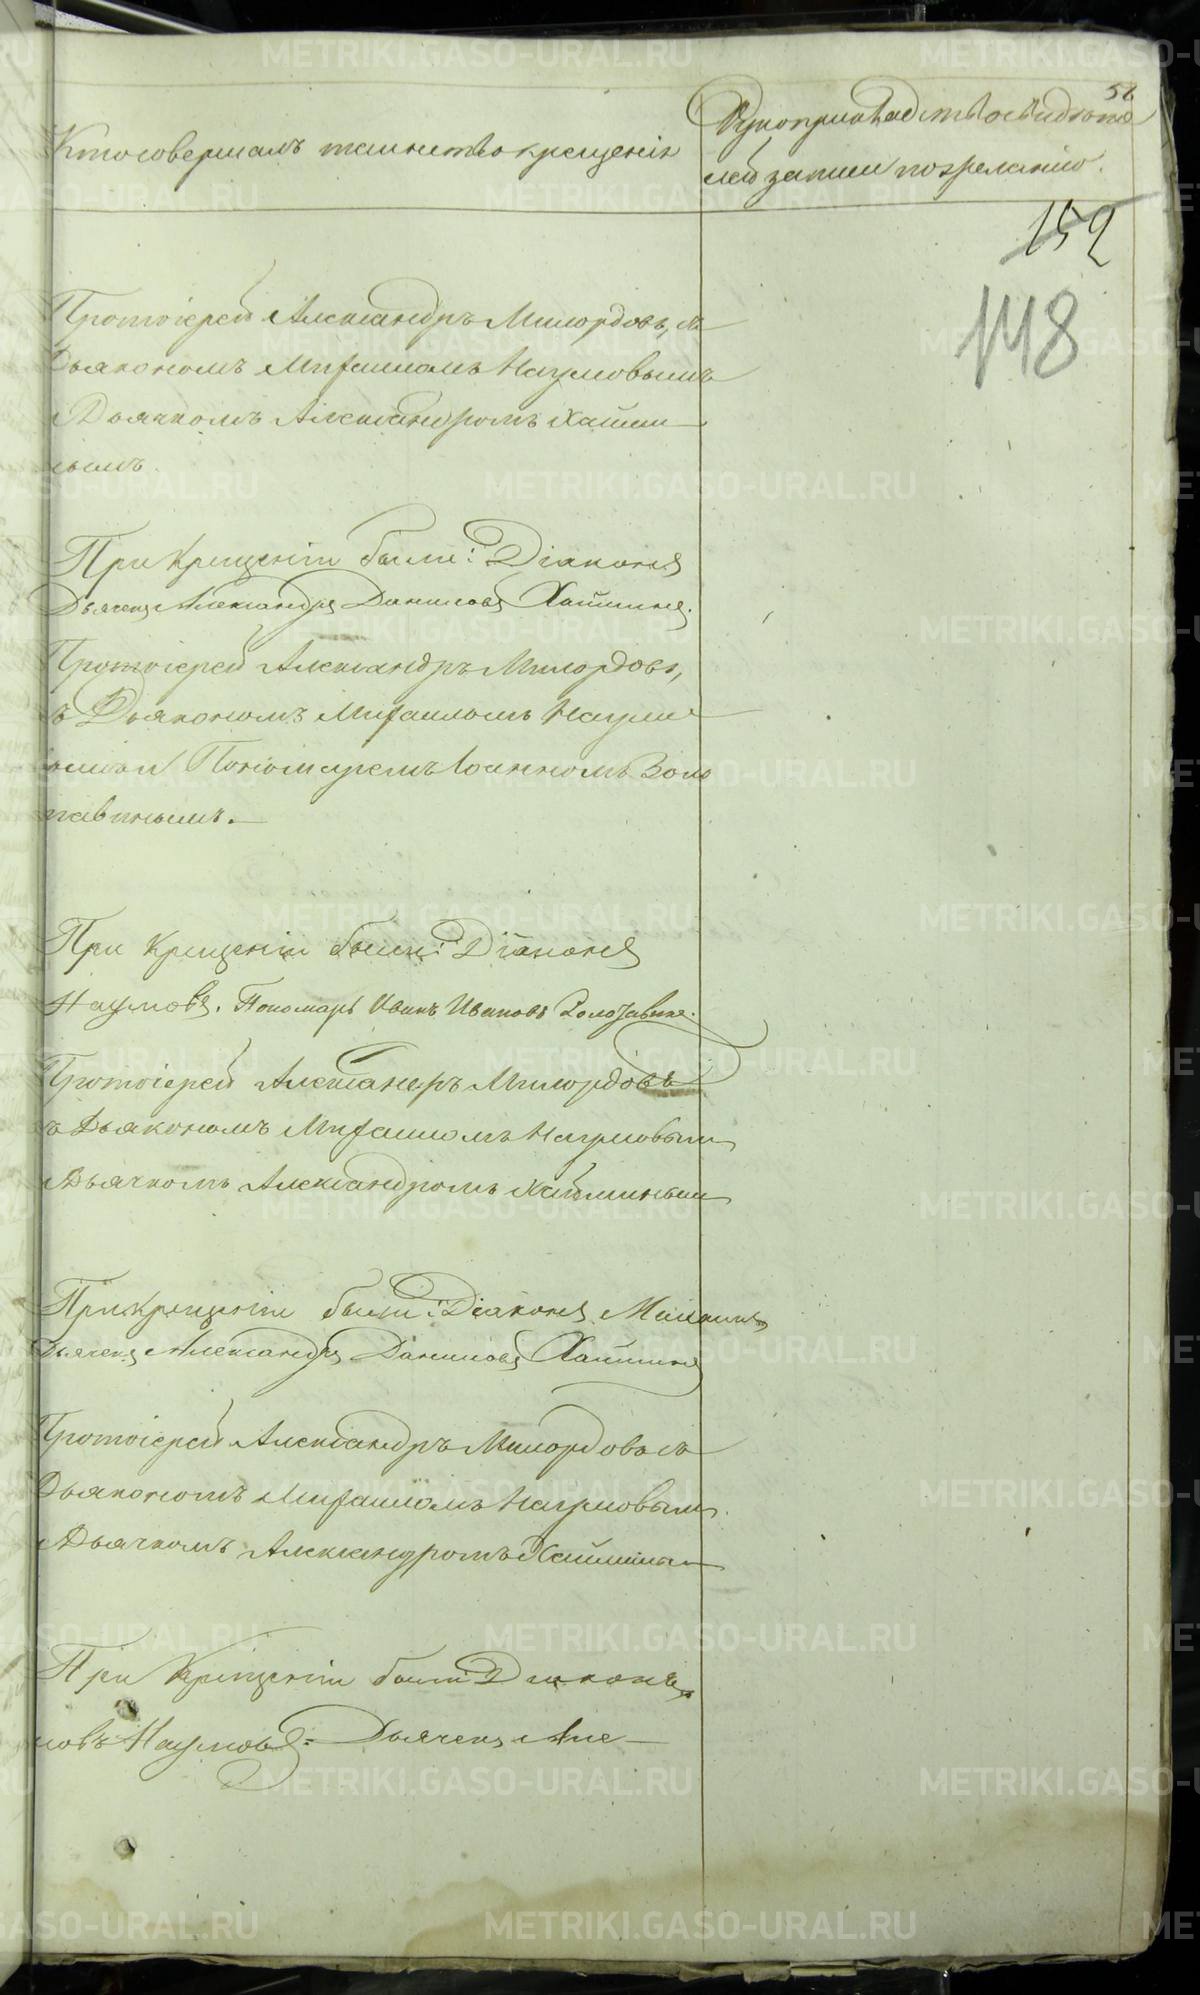 58
Кто совершалъ таинство крещенія
Рукоприкладство свидѣте
лей записи по желанію.
152
148
Протоіерей Александръ Милордовъ, съ
Дьякономъ Михаиломъ Наумовымъ
и Дьячкомъ Александромъ Хаймин
ымъ.
При Крещеніи были: Діаконъ
Дьячекъ Александръ Даниловъ Хайминъ.
Протоіерей Александръ Милордовъ,
съ Дьякономъ Михаиломъ Наумо
Пономаремъ Іоанномъ Воло
завинымъ.
При Крещеніи были: Діаконъ
Наумовъ. Пономарь Иванъ Ивановъ Волозавинъ.
Протоіерей Александръ Милордовъ
съ Дьякономъ Михаиломъ Наумовым
и Дьячкомъ Александромъ Хайминым
При Крещеніи были: Діаконъ Михаилъ
Дьячекъ Александръ Даниловъ Хайминъ
Протоіерей Александръ Милордовъ съ
Дьякономъ Михаиломъ Наумовым
и Дьячкомъ Александромъ Хайминым
При Крещеніи были Діаконъ
ловъ Наумовъ: Дьячекъ Але
METRIKI.GASO-URAL.RU